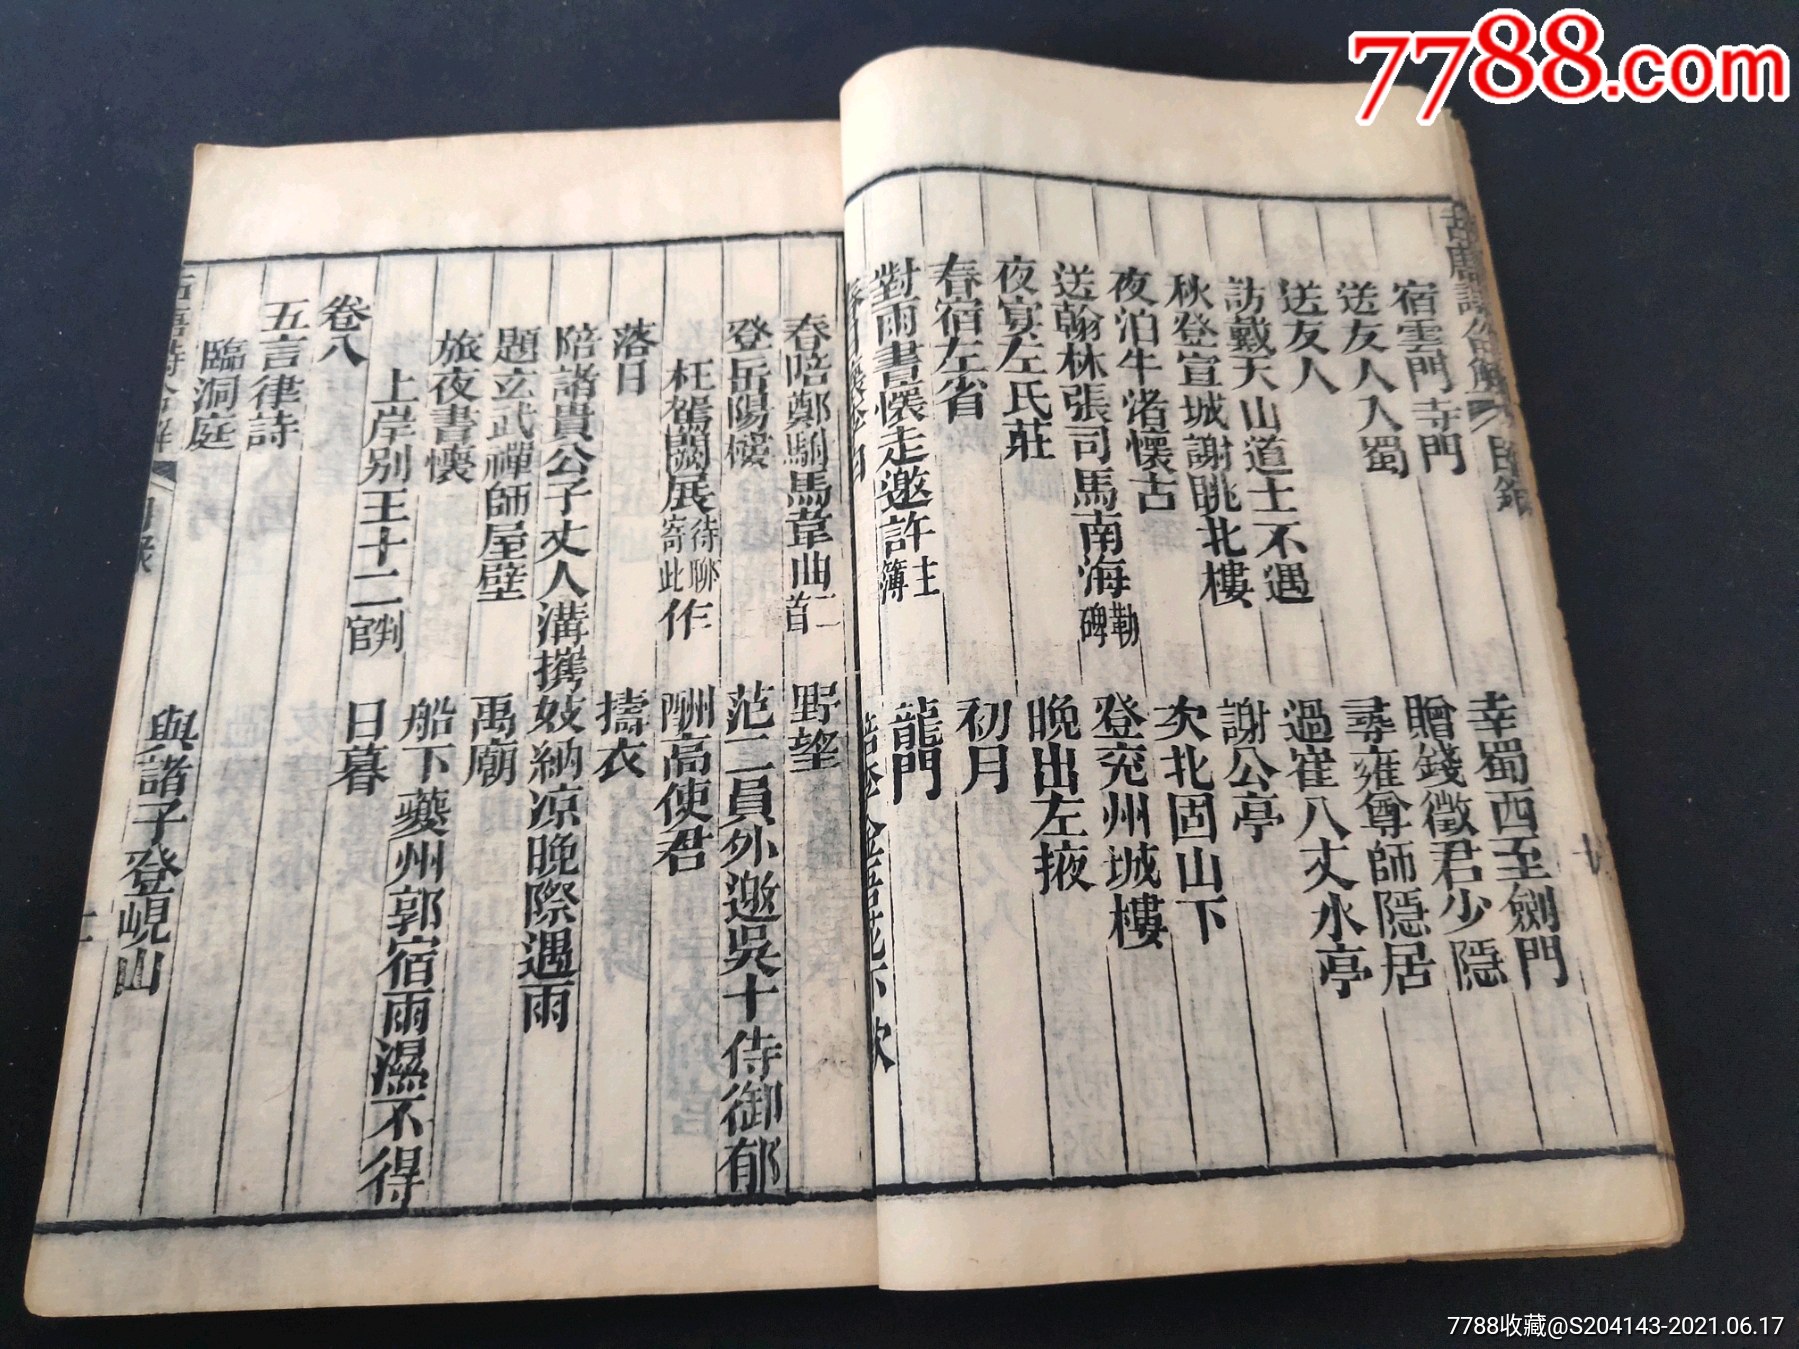 7788.com
宿雲門寺門
幸蜀西至劍門
送友人入蜀
贈錢徵君少隱
送友人
尋雍尊師隱居
訪戴天山道士不遇
過崔八丈水亭
秋登宣城謝眺北樓
謝公亭
夜泊牛渚懷古
次北固山下
送翰林張司馬南海勒碑
登兖州城樓
夜宴左氏莊
晚出左掖
春宿左省
初月
對雨書懷走邀許主簿
龍門
春陪鄭駙馬韋曲二首
野望
登岳陽樓
范二員外邀吳十侍御郁
枉駕闕展待聊寄此作
酬高使君
落日
擣衣
陪諸貴公子丈人溝攜妓納凉晚際遇雨
題玄武禪師屋壁
禹廟
旅夜書懷
船下夔州郭宿雨濕不得
上岸别王十二判官
日暮
卷八
五言律詩
臨洞庭
與諸子登峴山
7788收藏@S204143-2021.06.17